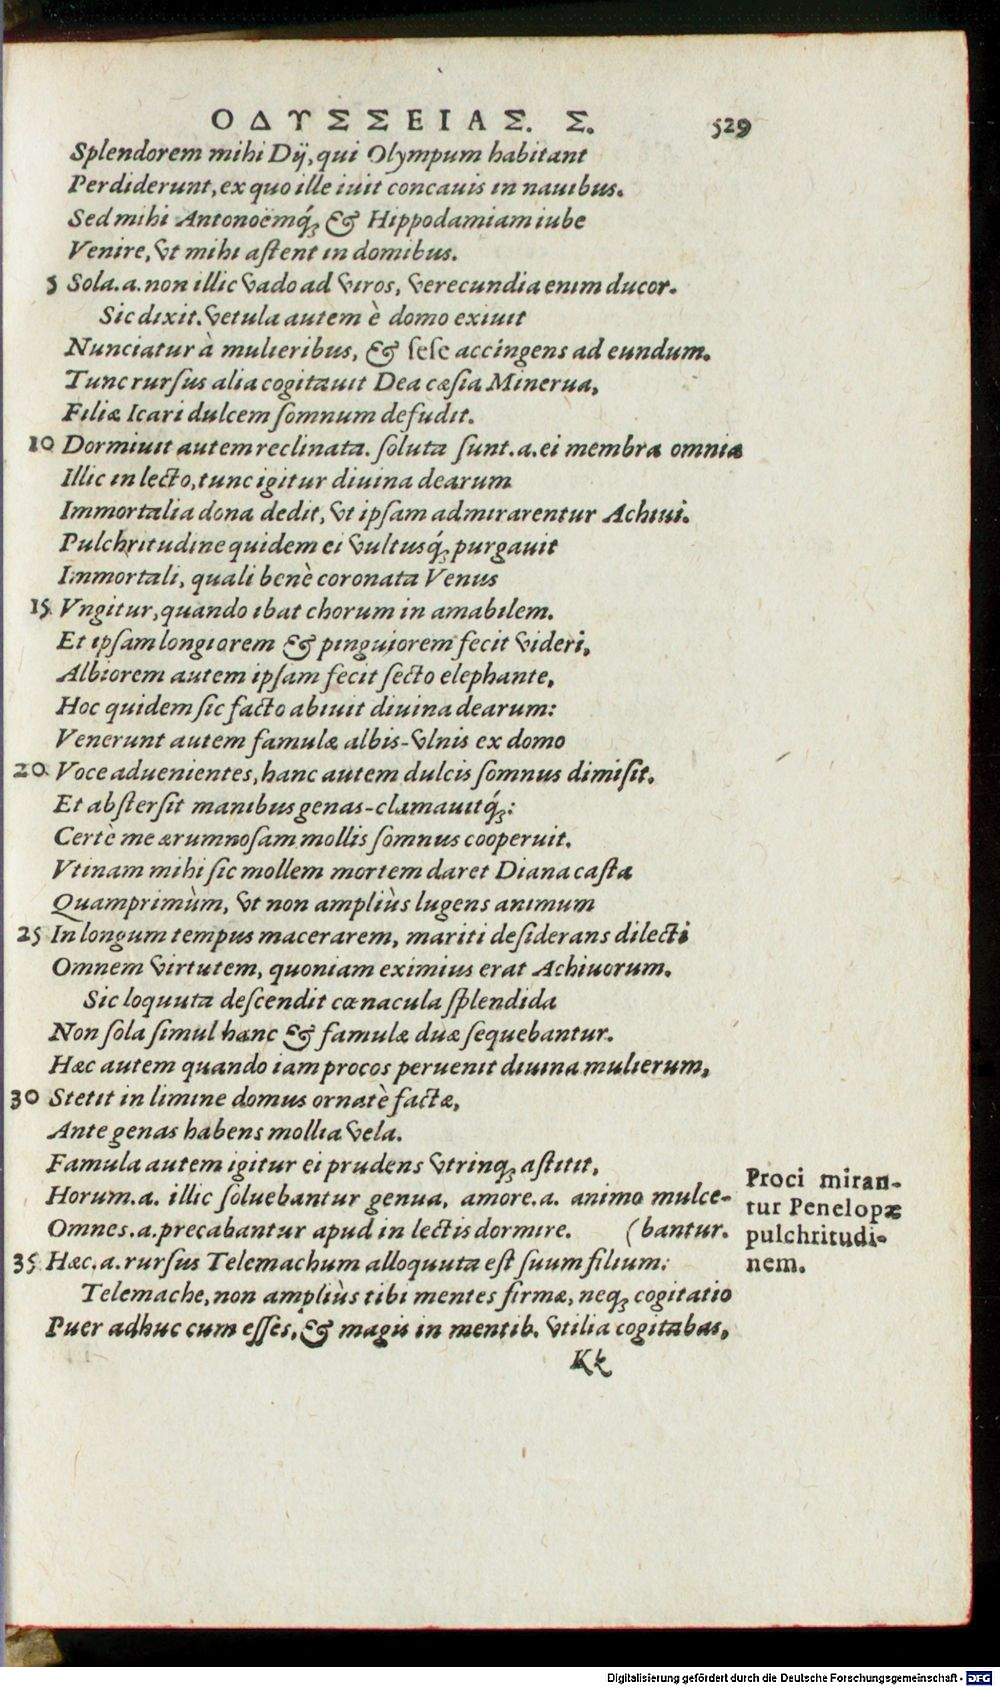 ΟΔΥΣΣΕΙΑΣ. Σ. 529
Splendorem mihi Dij, qui Olympum habitant
Perdiderunt, ex quo ille iuit concauis in nauibus.
Sed mihi Antonoëmq́; & Hippodamiam iube
Venire, vt mihi astent in domibus.
5 Sola.a.non illic vado ad viros, verecundia enim ducor.
Sic dixit. vetula autem è domo exiuit
Nunciatur à mulieribus, & sese accingens ad eundum.
Tunc rursus alia cogitauit Dea cæsia Minerua,
Filiæ Icari dulcem somnum defudit.
10 Dormiuit autem reclinata. soluta sunt.a.ei membra omnia
Illic in lecto, tunc igitur diuina dearum
Immortalia dona dedit, vt ipsam admirarentur Achiui.
Pulchritudine quidem ei vultusq́; purgauit
Immortali, quali benè coronata Venus
15 Vngitur, quando ibat chorum in amabilem.
Et ipsam longiorem & pinguiorem fecit videri,
Albiorem autem ipsam fecit secto elephante,
Hoc quidem sic facto abiuit diuina dearum:
Venerunt autem famulæ albis-vlnis ex domo
20 Voce aduenientes, hanc autem dulcis somnus dimisit.
Et abstersit manibus genas-clamauitq́;:
Certè me ærumnosam mollis somnus cooperuit.
Vtinam mihi sic mollem mortem daret Diana casta
Quamprimùm, vt non ampliùs lugens animum
25 In longum tempus macerarem, mariti desiderans dilecti
Omnem virtutem, quoniam eximius erat Achiuorum.
Sic loquuta descendit cœnacula splendida
Non sola simul hanc & famulæ duæ sequebantur.
Hæc autem quando iam procos peruenit diuina mulierum,
30 Stetit in limine domus ornatè factæ,
Ante genas habens mollia vela.
Famula autem igitur ei prudens vtrinq; astitit,
Horum.a. illic soluebantur genua, amore.a. animo mulce-
Omnes.a.precabantur apud in lectis dormire. (bantur.
35 Hæc.a.rursus Telemachum alloquuta est suum filium:
Telemache, non ampliùs tibi mentes firmæ, neq; cogitatio
Puer adhuc cum esses, & magis in mentib. vtilia cogitabas,
Kk
Proci miran-
tur Penelopæ
pulchritudi-
nem.
Digitalisierung gefördert durch die Deutsche Forschungsgemeinschaft - DFG